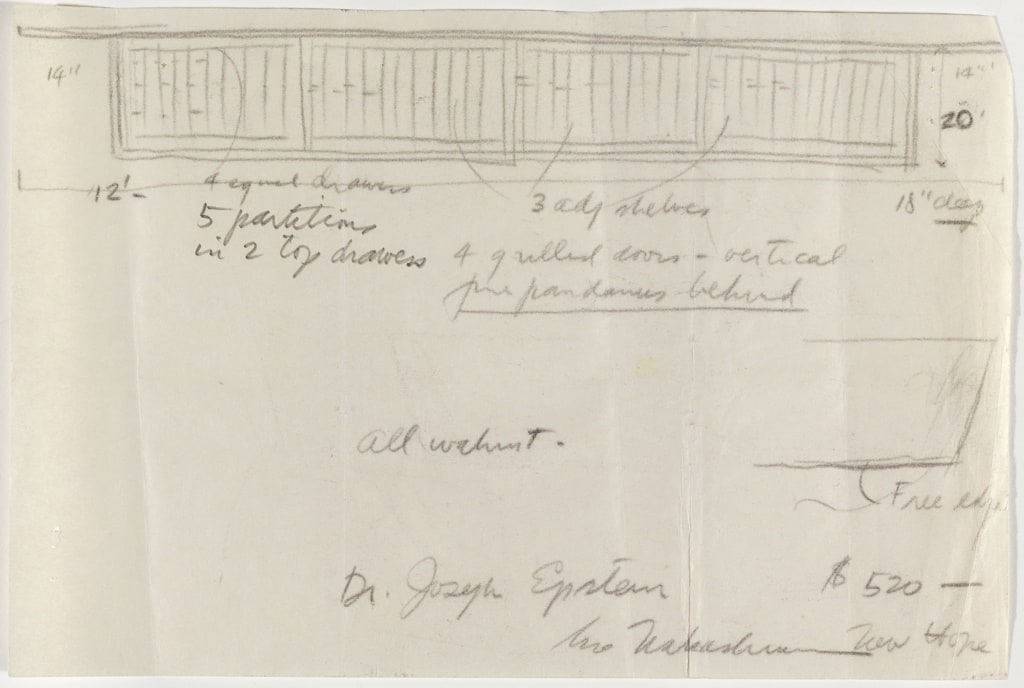 14"
14"
20"
12'-
4 equal drawers
3 adj shelves
18" deep
5 partitions
in 2 top drawers
4 grilled doors - vertical
pandanus behind
All walnut.
Free edge
Dr. Joseph Epstein
$ 520 —
Nakashima New Hope